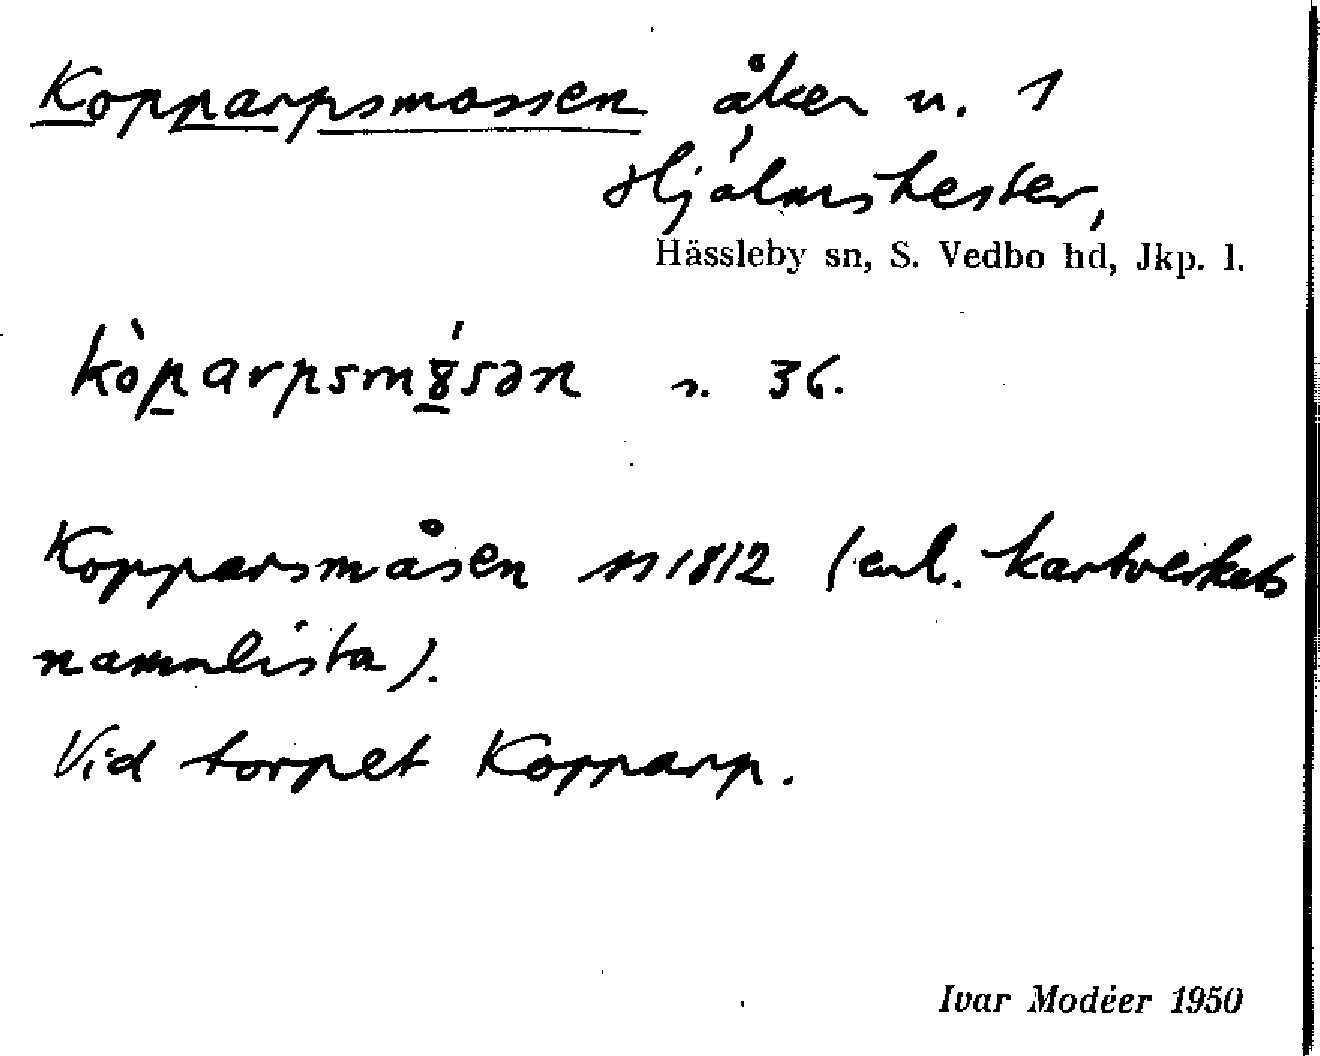 Kopparpsmossen åker u. 1
Hjälmshester,
Hässleby sn, S. Vedbo hd, Jkp. l.
s. 36.
Kopparsmåsen ss 1812 (enl. kartverkets
namnlista).
Vid torpet Kopparp.
Ivar Modéer 1950